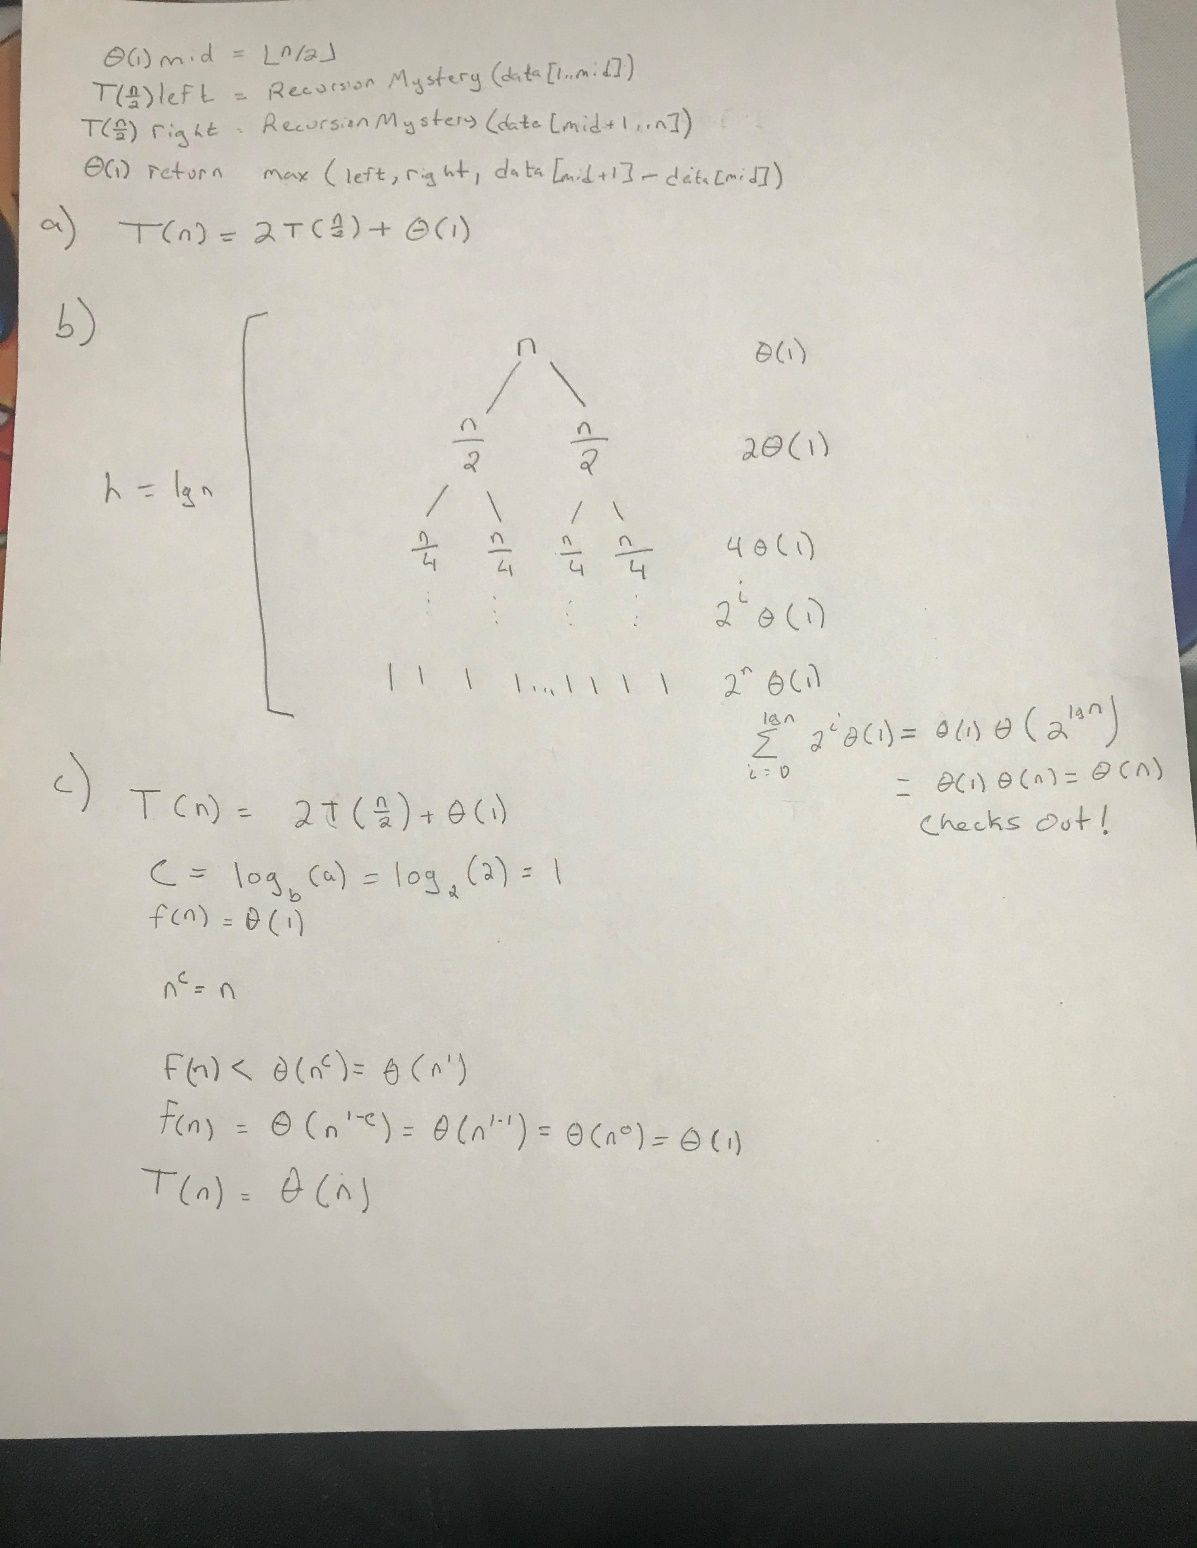 Θ(1) mid = ⌊n/2⌋
T(n/2) left = Recursion Mystery (data[1..mid])
T(n/2) right = Recursion Mystery (data [mid+1..n])
Θ(1) return max (left, right, data [mid+1] - data[mid])
a) T(n) = 2T(n/2) + Θ(1)
b)
n Θ(1)
n/2 n/2 2Θ(1)
h = lgn
n/4 n/4 n/4 n/4 4Θ(1)
⋮ ⋮ ⋮ ⋮ 2^i Θ(1)
1 1 1 1...1 1 1 1 2^n Θ(1)
∑_{i=0}^{lgn} 2^i Θ(1) = Θ(1) Θ(2^{lgn})
= Θ(1) Θ(n) = Θ(n)
Checks Out!
c) T(n) = 2T(n/2) + Θ(1)
C = log_b(a) = log_2(2) = 1
f(n) = Θ(1)
n^c = n
F(n) < Θ(n^c) = Θ(n^1)
f(n) = Θ(n^{1-ε}) = Θ(n^{1-1}) = Θ(n^0) = Θ(1)
T(n) = Θ(n)